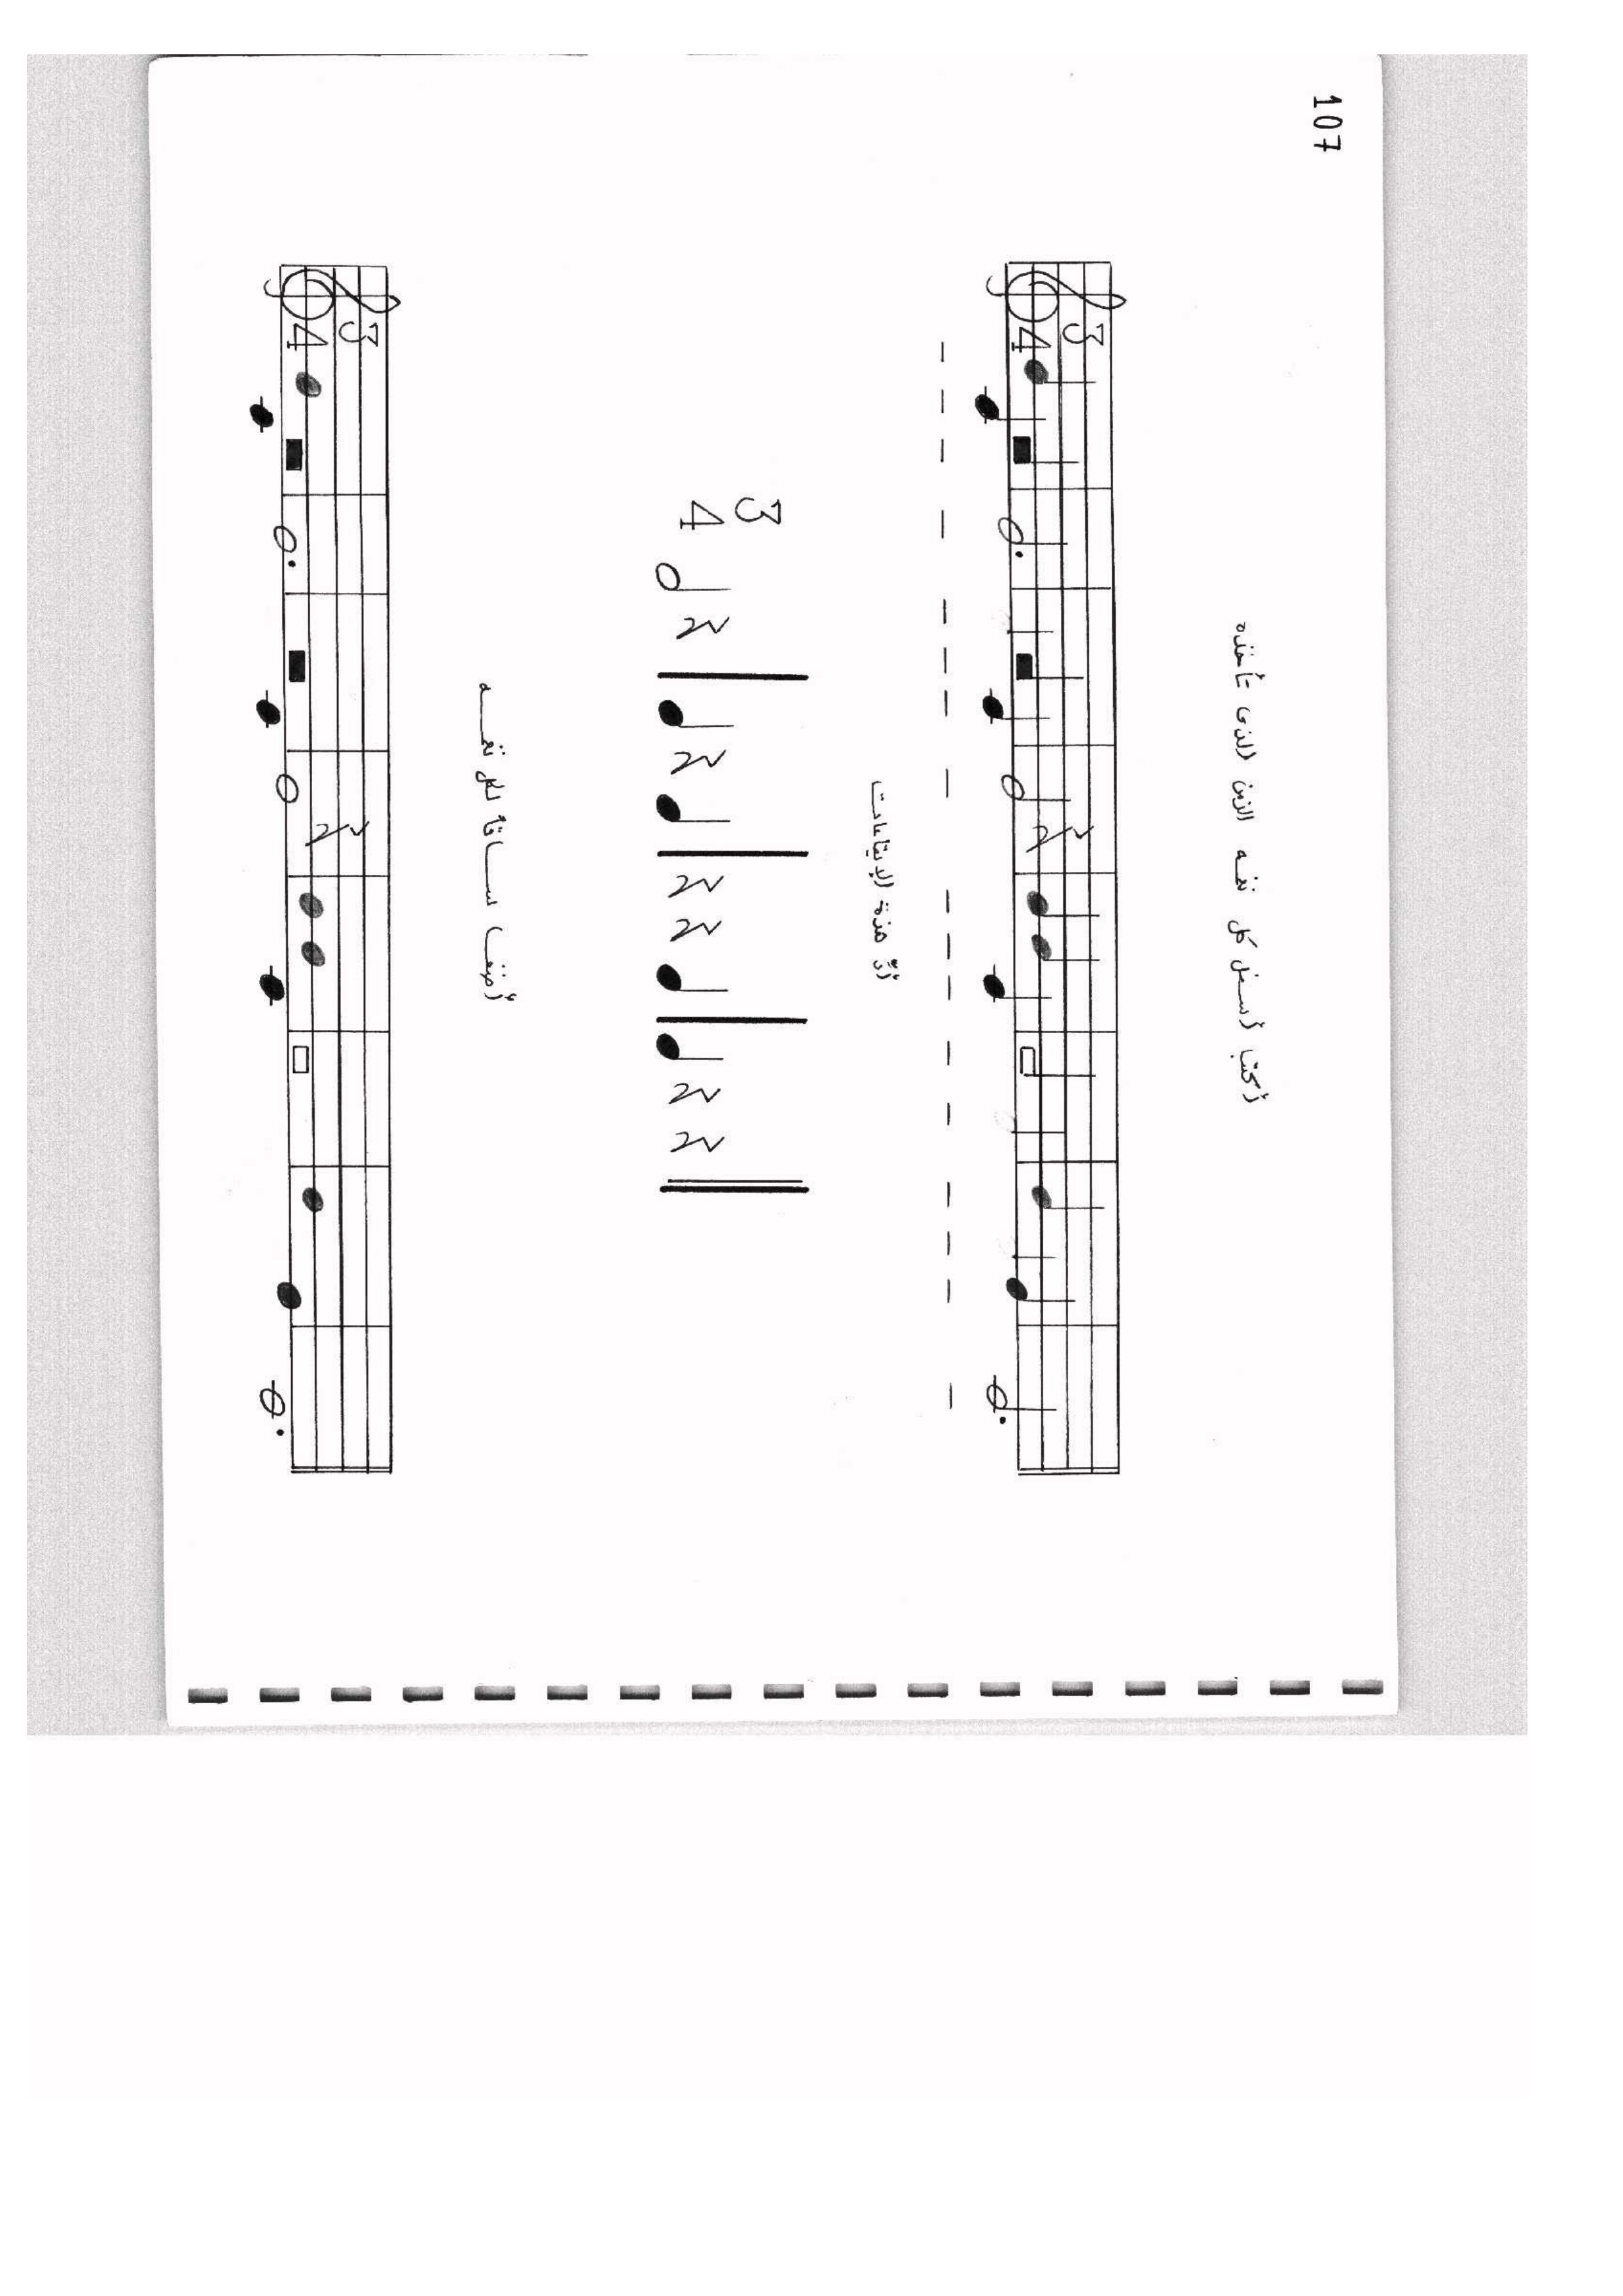 107
أكتب أسفل كل نغمه الزمن الذى تأخذه
3
4
أدِّ هذة الإيقاعات
3
4
أضف ساقاً لكل نغمـــه
3
4